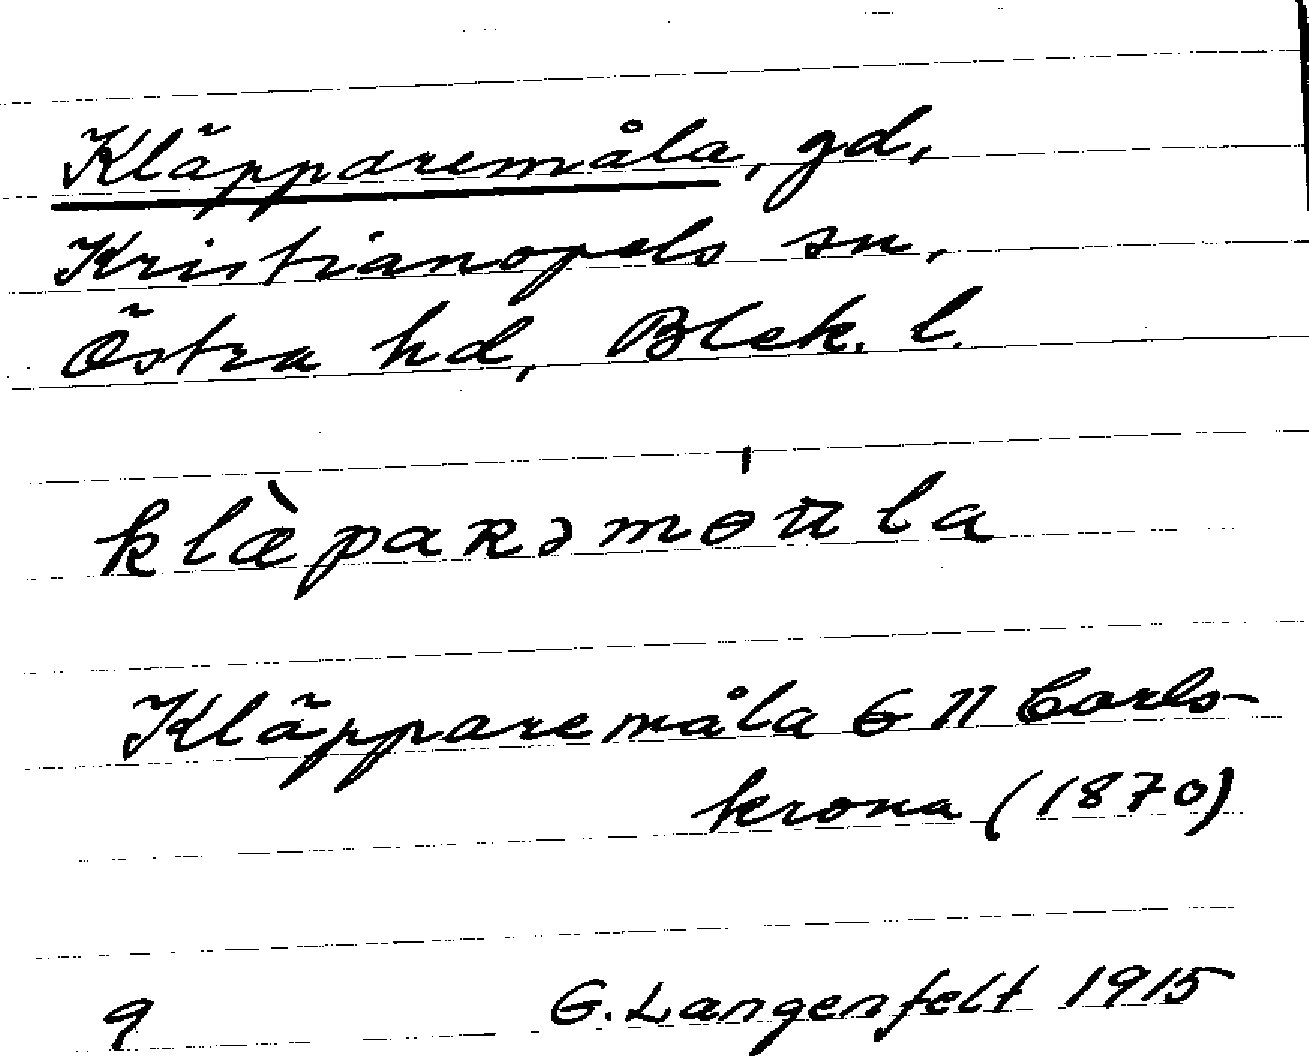 Kläpparemåla, gd,
Kristianopels sn,
Östra hd, Blek. l.
klæ̀paʀəmɵ'ᴨla
Kläpparemåla G 11 Carls-
krona (1870)
9 G. Langenfelt 1915